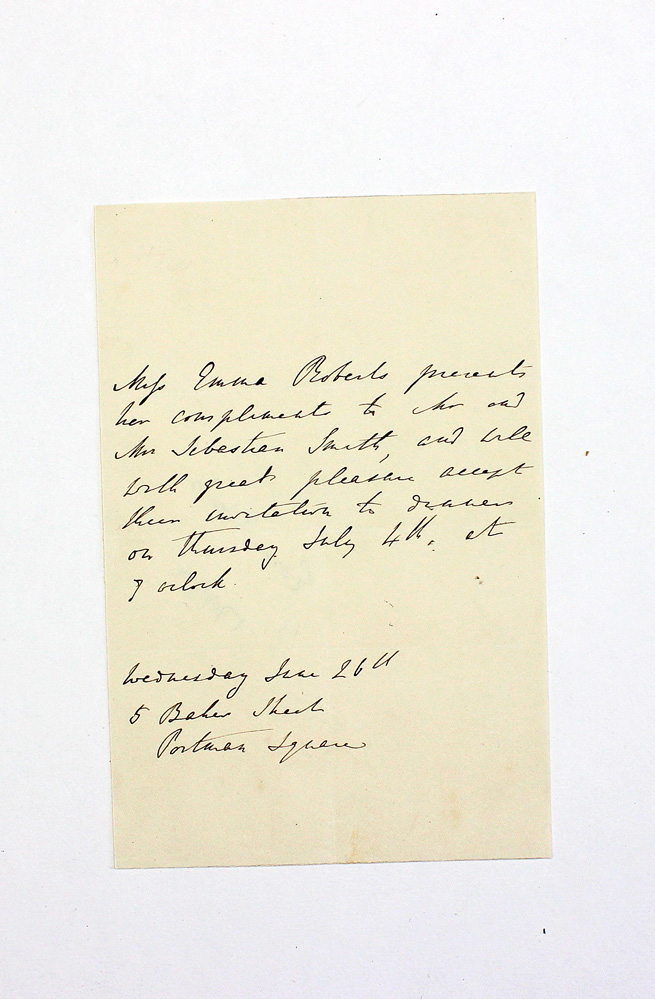 Miss Emma Roberts presents
her compliments to Mr and
Mrs Sebastian Smith, and will
with great pleasure accept
their invitation to dinner
on Thursday July 4th, at
7 oclock.
Wednesday June 26th
5 Baker Street
Portman Square